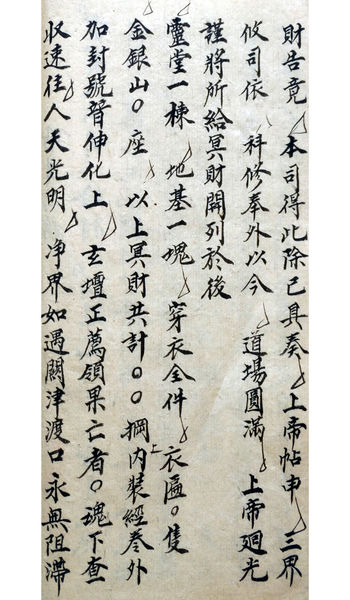 財告竟 本司得此除已具奏 上帝帖申 三界
攸司依 科修奉外以今 道場圓滿 上帝廻光
謹將所給冥財開列於後
靈堂一棟 地基一塊 穿衣全件 衣匾○隻
金銀山○座 以上冥財共計○○綱内裝經卷外
加封號晉伸化上 玄壇正薦領果亡者○魂下查
收速往人天光明 净界如遇關津渡口永無阻滯